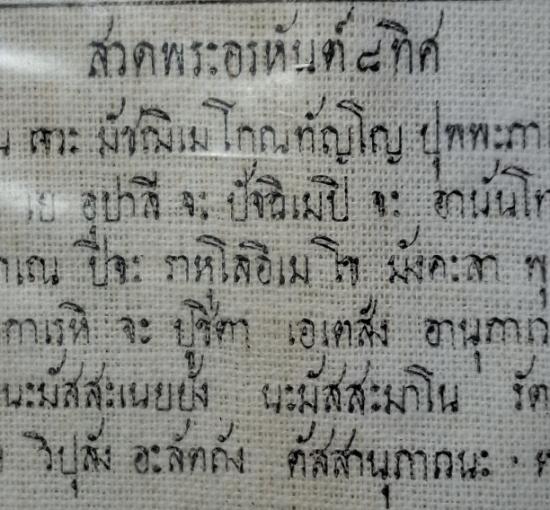 สวดพระอรหันต์๘ทิศ
จะ มัชฌิเม โกณทัญโญ ปุพพะภา
อุปาลี จะ ปัจฉิเมปิ จะ อานันโท
ปิจะ ราหุโลอิเม โข มังคะลา พุ
การหิ จะ ปูชิตา เอเตสัง อานุภาเว
นะมัสสะเนยยัง นะมัสสะมาโน รัต
วิปุลัง อะลัตถัง ตัสสานุภาวนะ